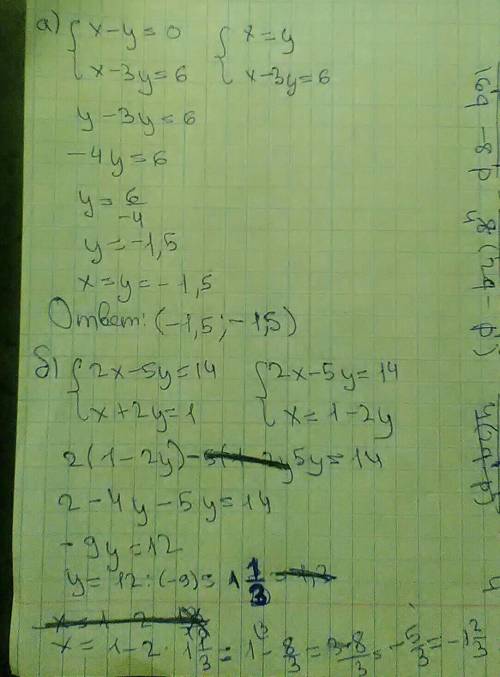 а) { x-y=0 { x=y
{ x-3y=6 { x-3y=6
y-3y=6
-4y=6
y=6/-4
y=-1,5
x=y=-1,5
Ответ: (-1,5; -1,5)
б) { 2x-5y=14 { 2x-5y=14
{ x+2y=1 { x=1-2y
2(1-2y)-5y=14
2-4y-5y=14
-9y=12
y=12:(-9)=1 1/3
x=1-2·1 1/3=1-8/3=3-8/3=-5/3=-1 2/3